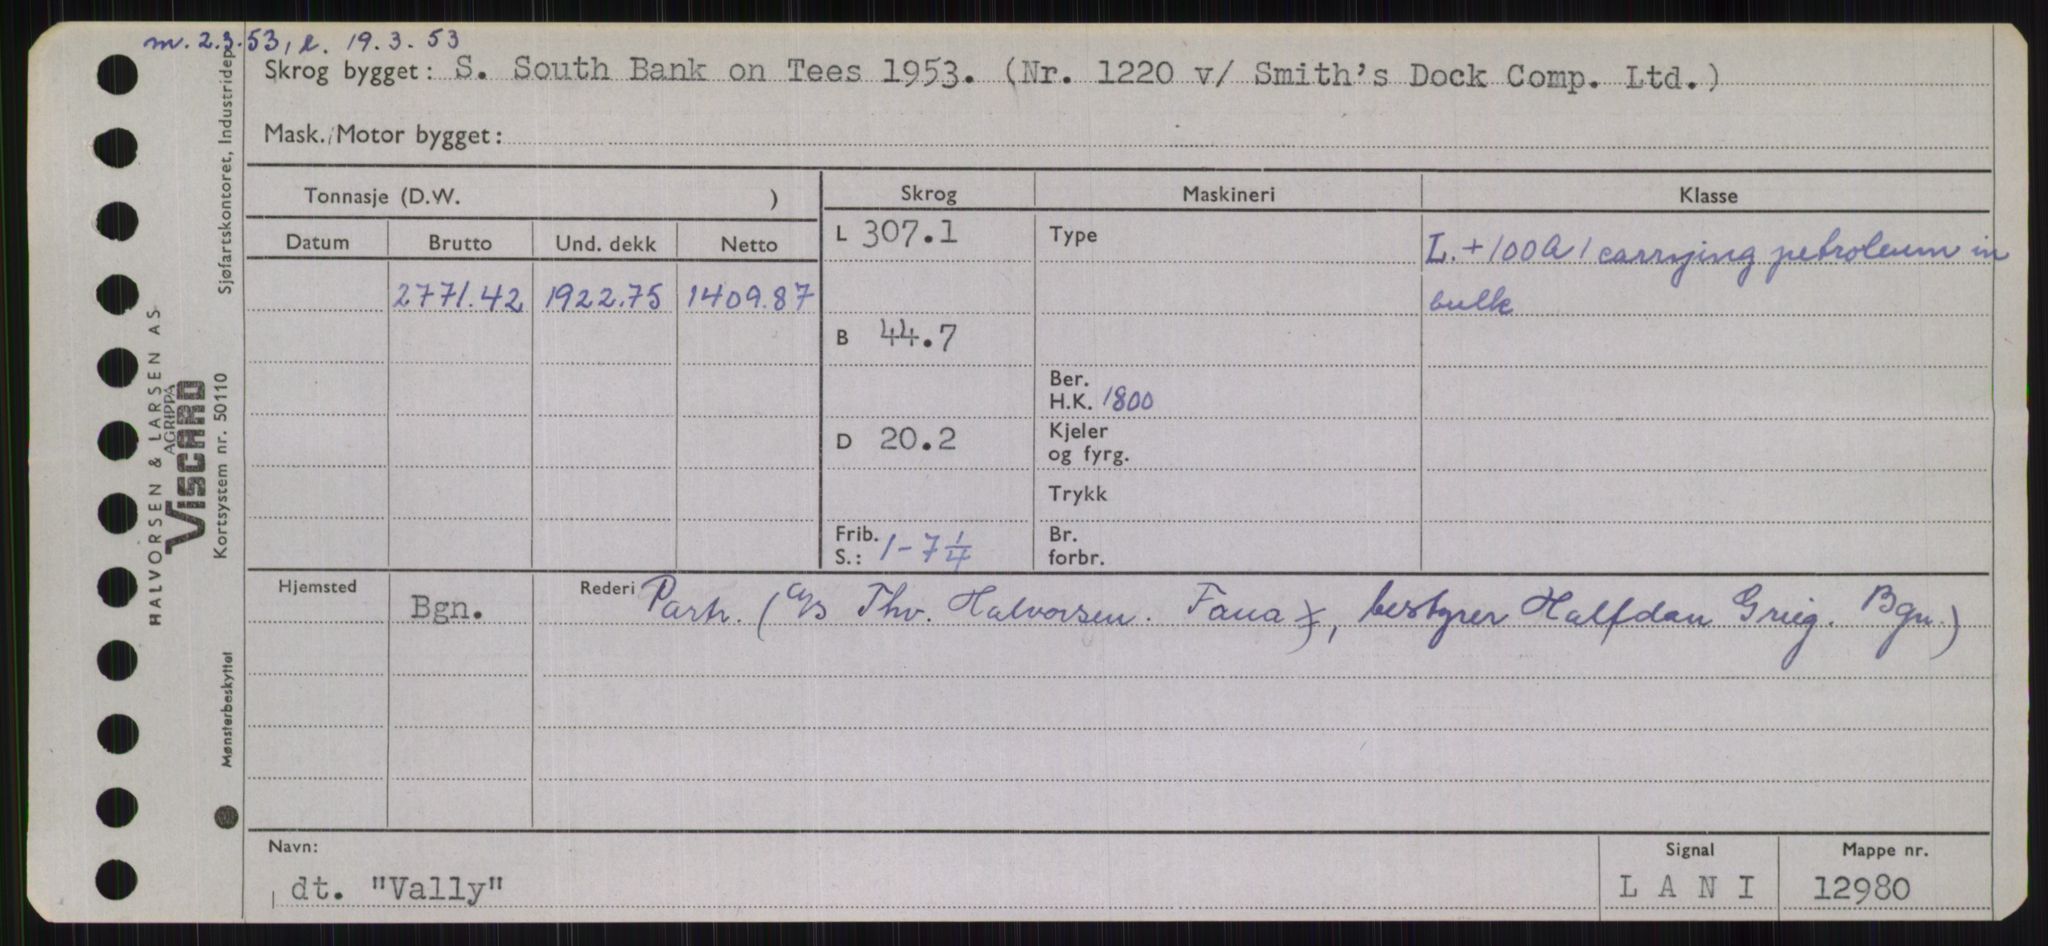 m. 2.3.53, l. 19.3.53
Skrog bygget: S. South Bank on Tees 1953. (Nr. 1220 v/ Smith's Dock Comp. Ltd.)
Mask./Motor bygget:
Tonnasje (D.W. )
Skrog Maskineri Klasse
Datum Brutto Und. dekk Netto
L 307.1 Type L. + 100 A 1 carrying petroleum in
2771.42 1922.75 1409.87 bulk
B 44.7
Ber.
H.K. 1800
D 20.2 Kjeler
og fyrg.
Trykk
Frib. Br.
S.: 1-7 1/4 forbr.
Hjemsted Bgn. Rederi Partr. (A/S Thv. Halvorsen. Fana), bestyrer Halfdan Grieg. Bgn.)
Navn: Signal Mappe nr.
dt. "Vally" L A N I 12980
HALVORSEN & LARSEN AS
AGRIPPA
VISCARD
Kortsystem nr. 50110
Sjøfartskontoret, Industridep.
Mønsterbeskyttet